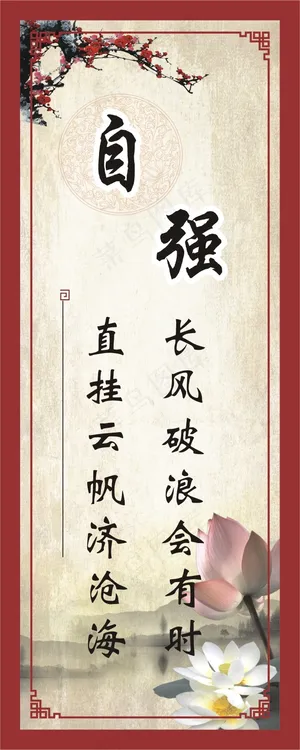 自强
长风破浪会有时
直挂云帆济沧海